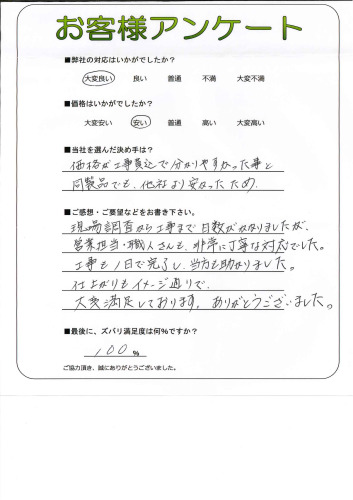 お客様アンケート
■弊社の対応はいかがでしたか?
大変良い 良い 普通 不満 大変不満
■価格はいかがでしたか?
大変安い 安い 普通 高い 大変高い
■当社を選んだ決め手は?
価格が工事費込で分かりやすかった事と
同製品でも、他社より安なったため.
■ご感想・ご要望などをお書き下さい。
現場調査から工事まで日数がかかりましたが、
営業担当・職人さんも、非常に丁寧な対応でした。
工事も1日で完了し、当方も助かりました。
仕上がりもイメージ通りで、
大変満足しております。ありがとうございました。
■最後に、ズバリ満足度は何%ですか?
100 %
ご協力頂き、誠にありがとうございました。